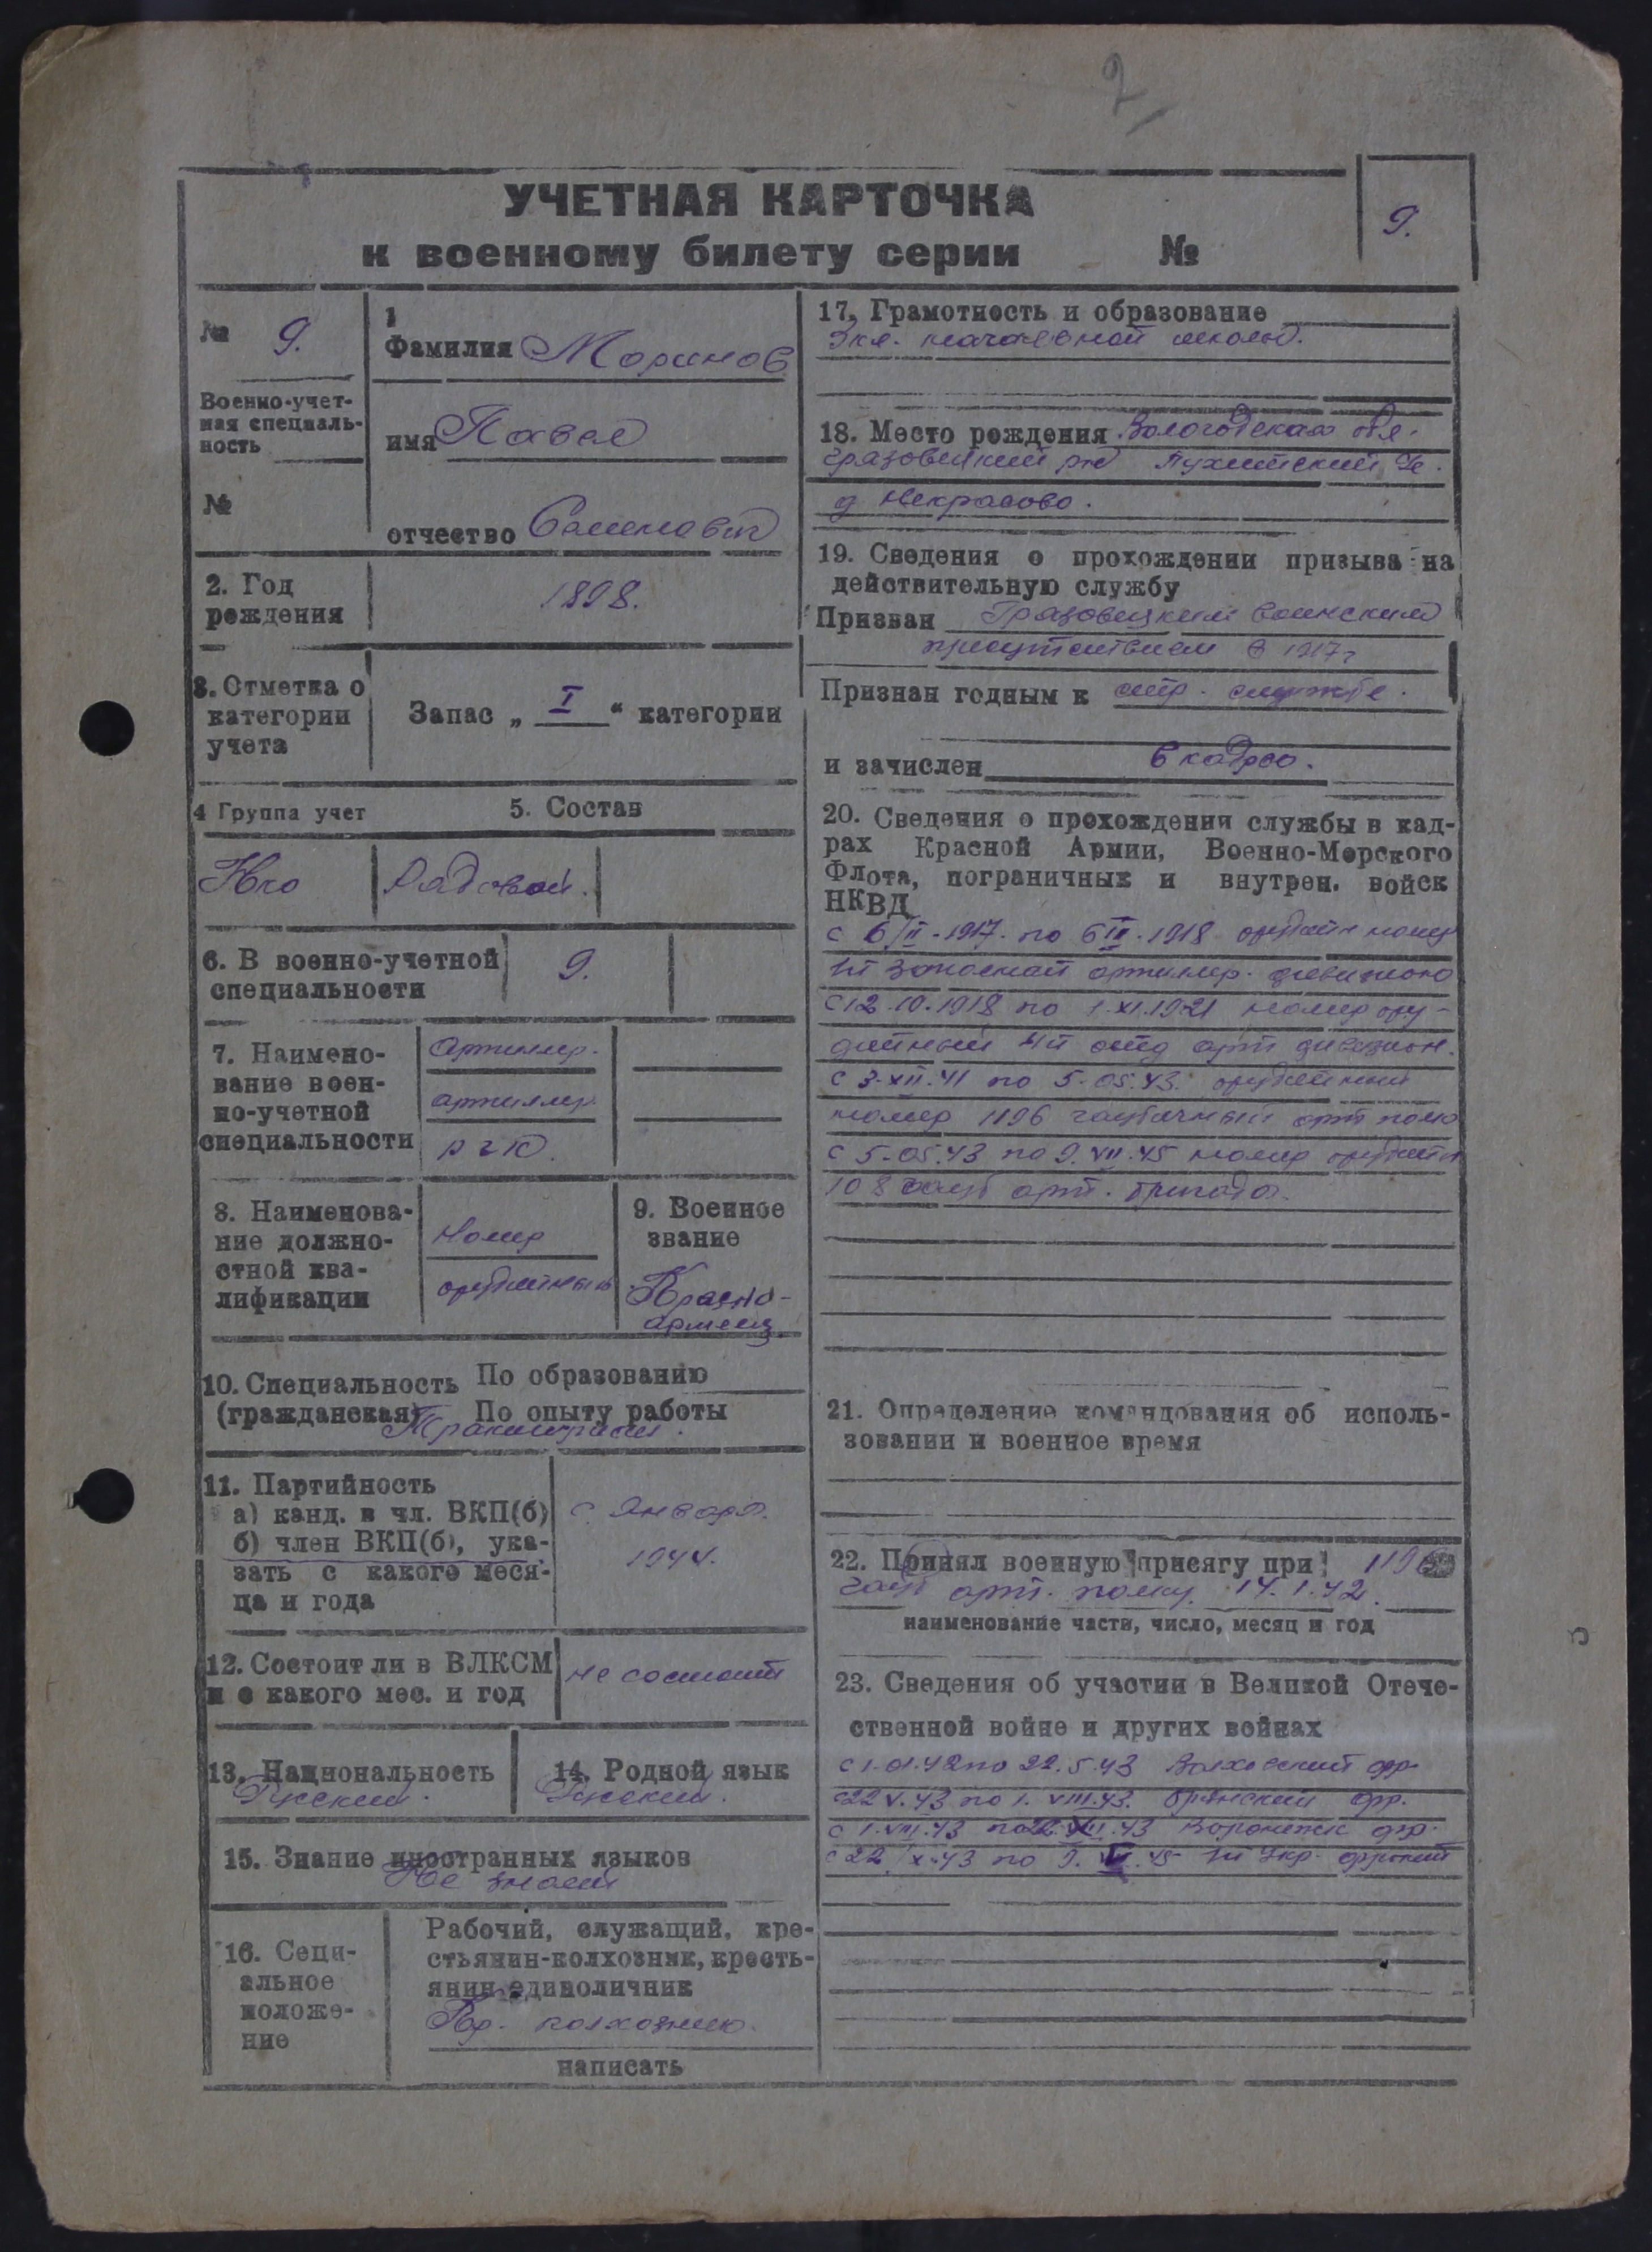 2
УЧЕТНАЯ КАРТОЧКА
к военному билету серии №
9.
№ 9.
Военно-учет-
ная специаль-
ность
№
1
Фамилия Моринов
имя Павел
отчество Семенович
2. Год
рождения
1898.
3. Отметка о
категории
учета
Запас „ I “ категории
4 Группа учет
5. Состав
Рядовой.
6. В военно-учетной
специальности
9.
7. Наимено-
вание воен-
но-учетной
специальности
Артиллер.
артиллер.
РГК.
8. Наименова-
ние должно-
стной ква-
лификации
Номер
орудийный
9. Военное
звание
Красно-
армеец
10. Специальность По образованию
(гражданская) По опыту работы
11. Партийность
а) канд. в чл. ВКП(б)
б) член ВКП(б), ука-
зать с какого меся-
ца и года
с января
1944.
12. Состоит ли в ВЛКСМ
и с какого мес. и год
не состоит
13. Национальность
Русский.
14. Родной язык
Русский.
15. Знание иностранных языков
Не знает
16. Соци-
альное
положе-
ние
Рабочий, служащий, кре-
стьянин-колхозник, кресть-
янин единоличник
Кр. колхозник.
написать
17. Грамотность и образование
3 кл. начальной школы.
18. Место рождения Вологодская обл.
Грязовецкий р-н
д Некрасово.
19. Сведения о прохождении призыва на
действительную службу
Призван Грязовецким воинским
присутствием в 1917г
Признан годным к стр. службе.
и зачислен в кадро.
20. Сведения о прохождении службы в кад-
рах Красной Армии, Военно-Морского
Флота, пограничных и внутрен. войск
НКВД
с 6/II-1917. по 6 III.1918 орудийн номер
запасной артиллер. дивизиона
с 12.10.1918 по 1.XI.1921 номер ору-
дийный арт дивизион.
с 3-XII.41 по 5-05.43. орудийный
номер 1196 гаубичный арт полк
с 5-05.43 по 9.VII.45 номер орудийн
108 гауб арт. бригада.
21. Определение командования об исполь-
зовании и военное время
22. Принял военную присягу при 1196
гауб арт. полку. 14.1.42.
наименование части, число, месяц и год
23. Сведения об участии в Великой Отече-
ственной войне и других войнах
с 1.01.42 по 22.5.43 Волховский фр.
с 22 V.43 по 1.VIII.43. Брянский фр.
с 1.VIII.43 по 22. .43 Воронежск фр.
с 22/X.43 по 9. .45 1й Укр. фронт